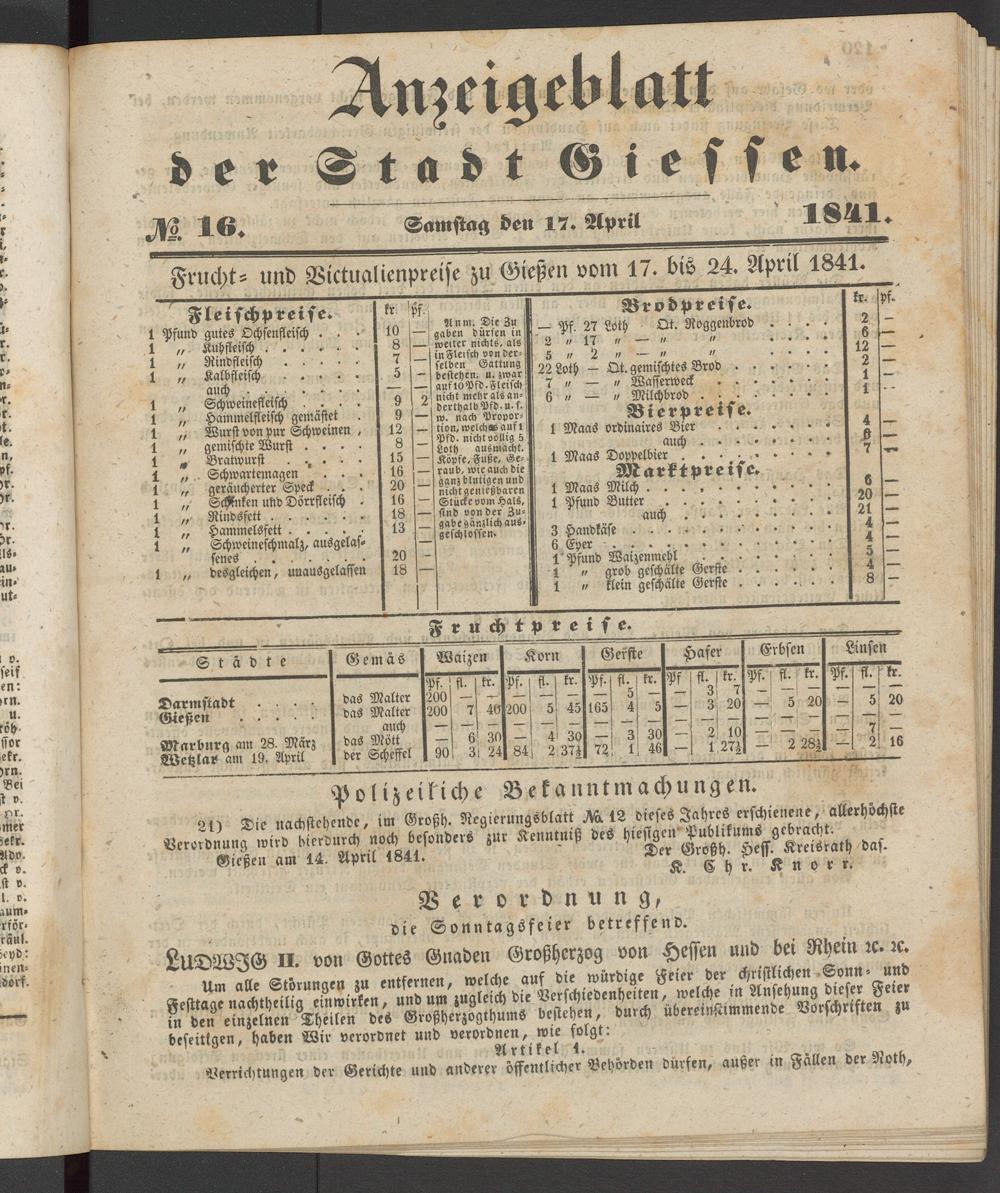 Anzeigeblatt
der Stadt Giessen.
No. 16. Samstag den 17. April 1841.
Frucht- und Victualienpreise zu Gießen vom 17. bis 24. April 1841.
Fleischpreise. kr. pf.
1 Pfund gutes Ochsenfleisch . . . 10 —
1 „ Kuhfleisch . . . . . 8 —
1 „ Rindfleisch . . . . . 7 —
1 „ Kalbfleisch . . . . . 5 —
auch . . . . . — —
1 „ Schweinefleisch . . . . 9 2
1 „ Hammelfleisch gemästet . 9 —
1 „ Wurst von pur Schweinen . 12 —
1 „ gemischte Wurst . . . . 8 —
1 „ Bratwurst . . . . . 15 —
1 „ Schwartemagen . . . . 16 —
1 „ geräucherter Speck . . . 20 —
1 „ Schinken und Dörrfleisch . 16 —
1 „ Rindsfett . . . . . . 18 —
1 „ Hammelsfett . . . . . 13 —
1 „ Schweineschmalz, ausgelas-
senes . . . . . . 20 —
1 „ desgleichen, unausgelassen 18 —
Anm. Die Zu
gaben dürfen in
weiter nichts, als
in Fleisch von der-
selben Gattung
bestehen, u. zwar
auf 10 Pfd. Fleisch
nicht mehr als an-
derthalb Pfd. u. s.
w. nach Propor-
tion, welches auf 1
Pfd. nicht völlig 5
Loth ausmacht.
Köpfe, Füße, Ge-
raub, wie auch die
ganz blutigen und
nicht genießbaren
Stücke vom Hals,
sind von der Zu-
gabe gänzlich aus-
geschlossen.
Brodpreise. kr. pf.
— Pf. 27 Loth Qt. Roggenbrod . . . . 2 —
2 „ 17 „ — „ „ . . . . 6 —
5 „ 2 „ — „ „ . . . . 12 —
22 Loth — Qt. gemischtes Brod . . . . 2 —
7 „ — „ Wasserweck . . . . 1 —
6 „ — „ Milchbrod . . . . 1 —
Bierpreise.
1 Maas ordinaires Bier . . . . 4 —
auch . . . . 6 —
1 Maas Doppelbier . . . . 7 —
Marktpreise.
1 Maas Milch . . . . 6 —
1 Pfund Butter . . . . 20 —
auch . . . . 21 —
3 Handkäse . . . . 4 —
6 Eyer . . . . 4 —
1 Pfund Waizenmehl . . . . 5 —
1 „ grob geschälte Gerste . . . . 4 —
1 „ klein geschälte Gerste . . . . 8 —
Fruchtpreise.
Städte Gemäs Waizen Korn Gerste Hafer Erbsen Linsen
Pf. fl. kr. Pf. fl. kr. Pf. fl. kr. Pf fl. kr. Pf. fl. kr. Pf. fl. kr.
Darmstadt . . . . das Malter 200 — — — — — — 5 — — 3 7 — — — — — —
Gießen . . . . das Malter 200 7 40 200 5 45 165 4 5 — 3 20 — 5 20 — 5 20
auch — — — — — — — — — — — — — — — — — —
Marburg am 28. März das Mött — 6 30 — 4 30 — 3 30 — 2 10 — — — — 7 —
Wetzlar am 19. April der Scheffel 90 3 24 84 2 37½ 72 1 46 — 1 27½ — 2 28½ — 2 16
Polizeiliche Bekanntmachungen.
21) Die nachstehende, im Großh. Regierungsblatt No. 12 dieses Jahres erschienene, allerhöchste
Verordnung wird hierdurch noch besonders zur Kenntniß des hiesigen Publikums gebracht.
Gießen am 14. April 1841. Der Großh. Hess. Kreisrath das.
K. Chr. Knorr.
Verordnung,
die Sonntagsfeier betreffend.
LUDWIG II. von Gottes Gnaden Großherzog von Hessen und bei Rhein ꝛc. ꝛc.
Um alle Störungen zu entfernen, welche auf die würdige Feier der christlichen Sonn- und
Festtage nachtheilig einwirken, und um zugleich die Verschiedenheiten, welche in Ansehung dieser Feier
in den einzelnen Theilen des Großherzogthums bestehen, durch übereinstimmende Vorschriften zu
beseitigen, haben Wir verordnet und verordnen, wie folgt:
Artikel 1.
Verrichtungen der Gerichte und anderer öffentlicher Behörden dürfen, außer in Fällen der Noth,